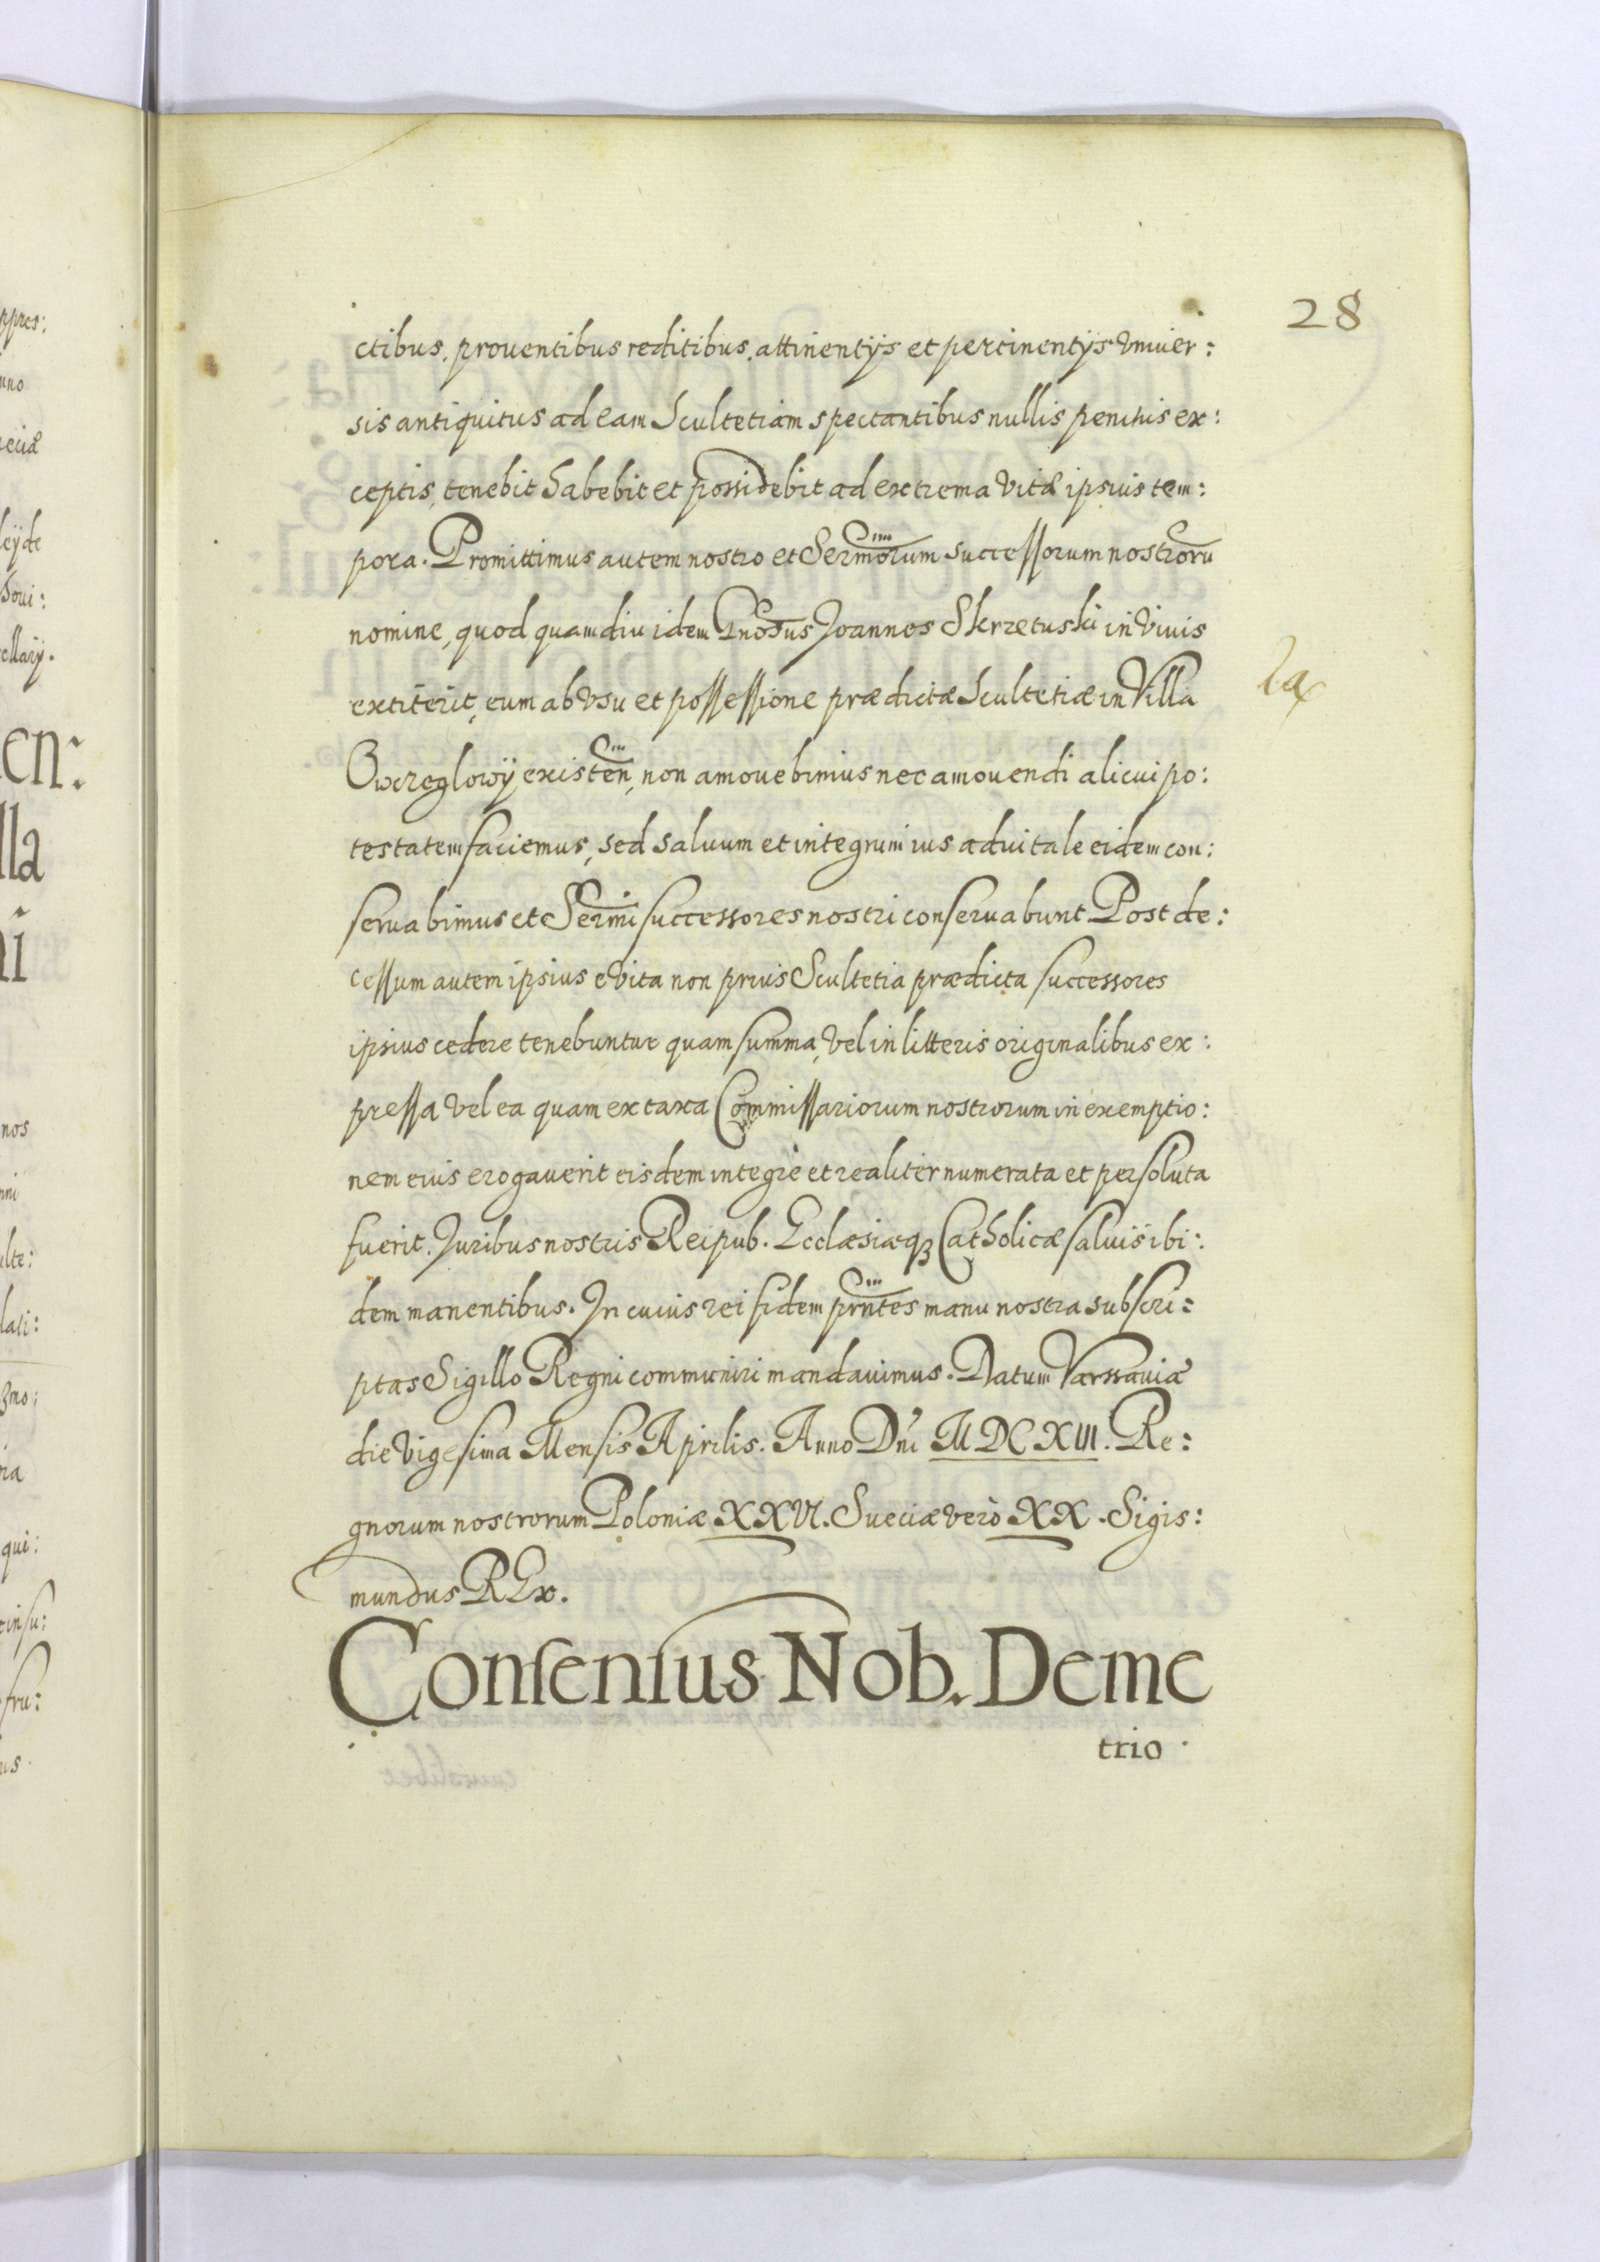 28
ctibus, proventibus reditibus, attinentijs et pertinentijs Vniver:
sis antiquitus ad eam Scultetiam spectantibus nullis penitus ex:
ceptis, tenebit habebit et possidebit ad extrema Vitæ ipsius tem:
pora. Promittimus autem nostro et Sermorum successorum nostroru
nomine, quod quamdiu idem Gnosus Joannes Skrzetuski in Vivis
extiterit, eum ab Vsu et possessione prædictæ Scultetiæ in Villa
Owczeglowÿ existen, non amovebimus nec amovendi alicui po:
testatem faciemus, sed salvum et integrum ius advitale eidem con:
servabimus et Sermi successores nostri conservabunt Post de:
cessum autem ipsius e Vita non prius Scultetia prædicta successores
ipsius cedere tenebuntur quam summa, Vel in litteris originalibus ex:
pressa Vel ea quam ex taxa Commissariorum nostrorum in exemptio:
nem eius erogaverit eisdem integrè et realiter numerata et persoluta
fuerit. Juribus nostris Reipub. Ecclæsiæq₃ Catholicæ salvis ibi:
dem manentibus. In cuius rei fidem prntes manu nostra subscri:
ptas Sigillo Regni communiri mandavimus. Datum Varssaviæ
die Vigesima Mensis Aprilis. Anno Dni MDCXIII. Re:
gnorum nostrorum Poloniæ XXVI. Sueciæ verò XX. Sigis:
mundus REx.
Consensus Nob. Deme
trio